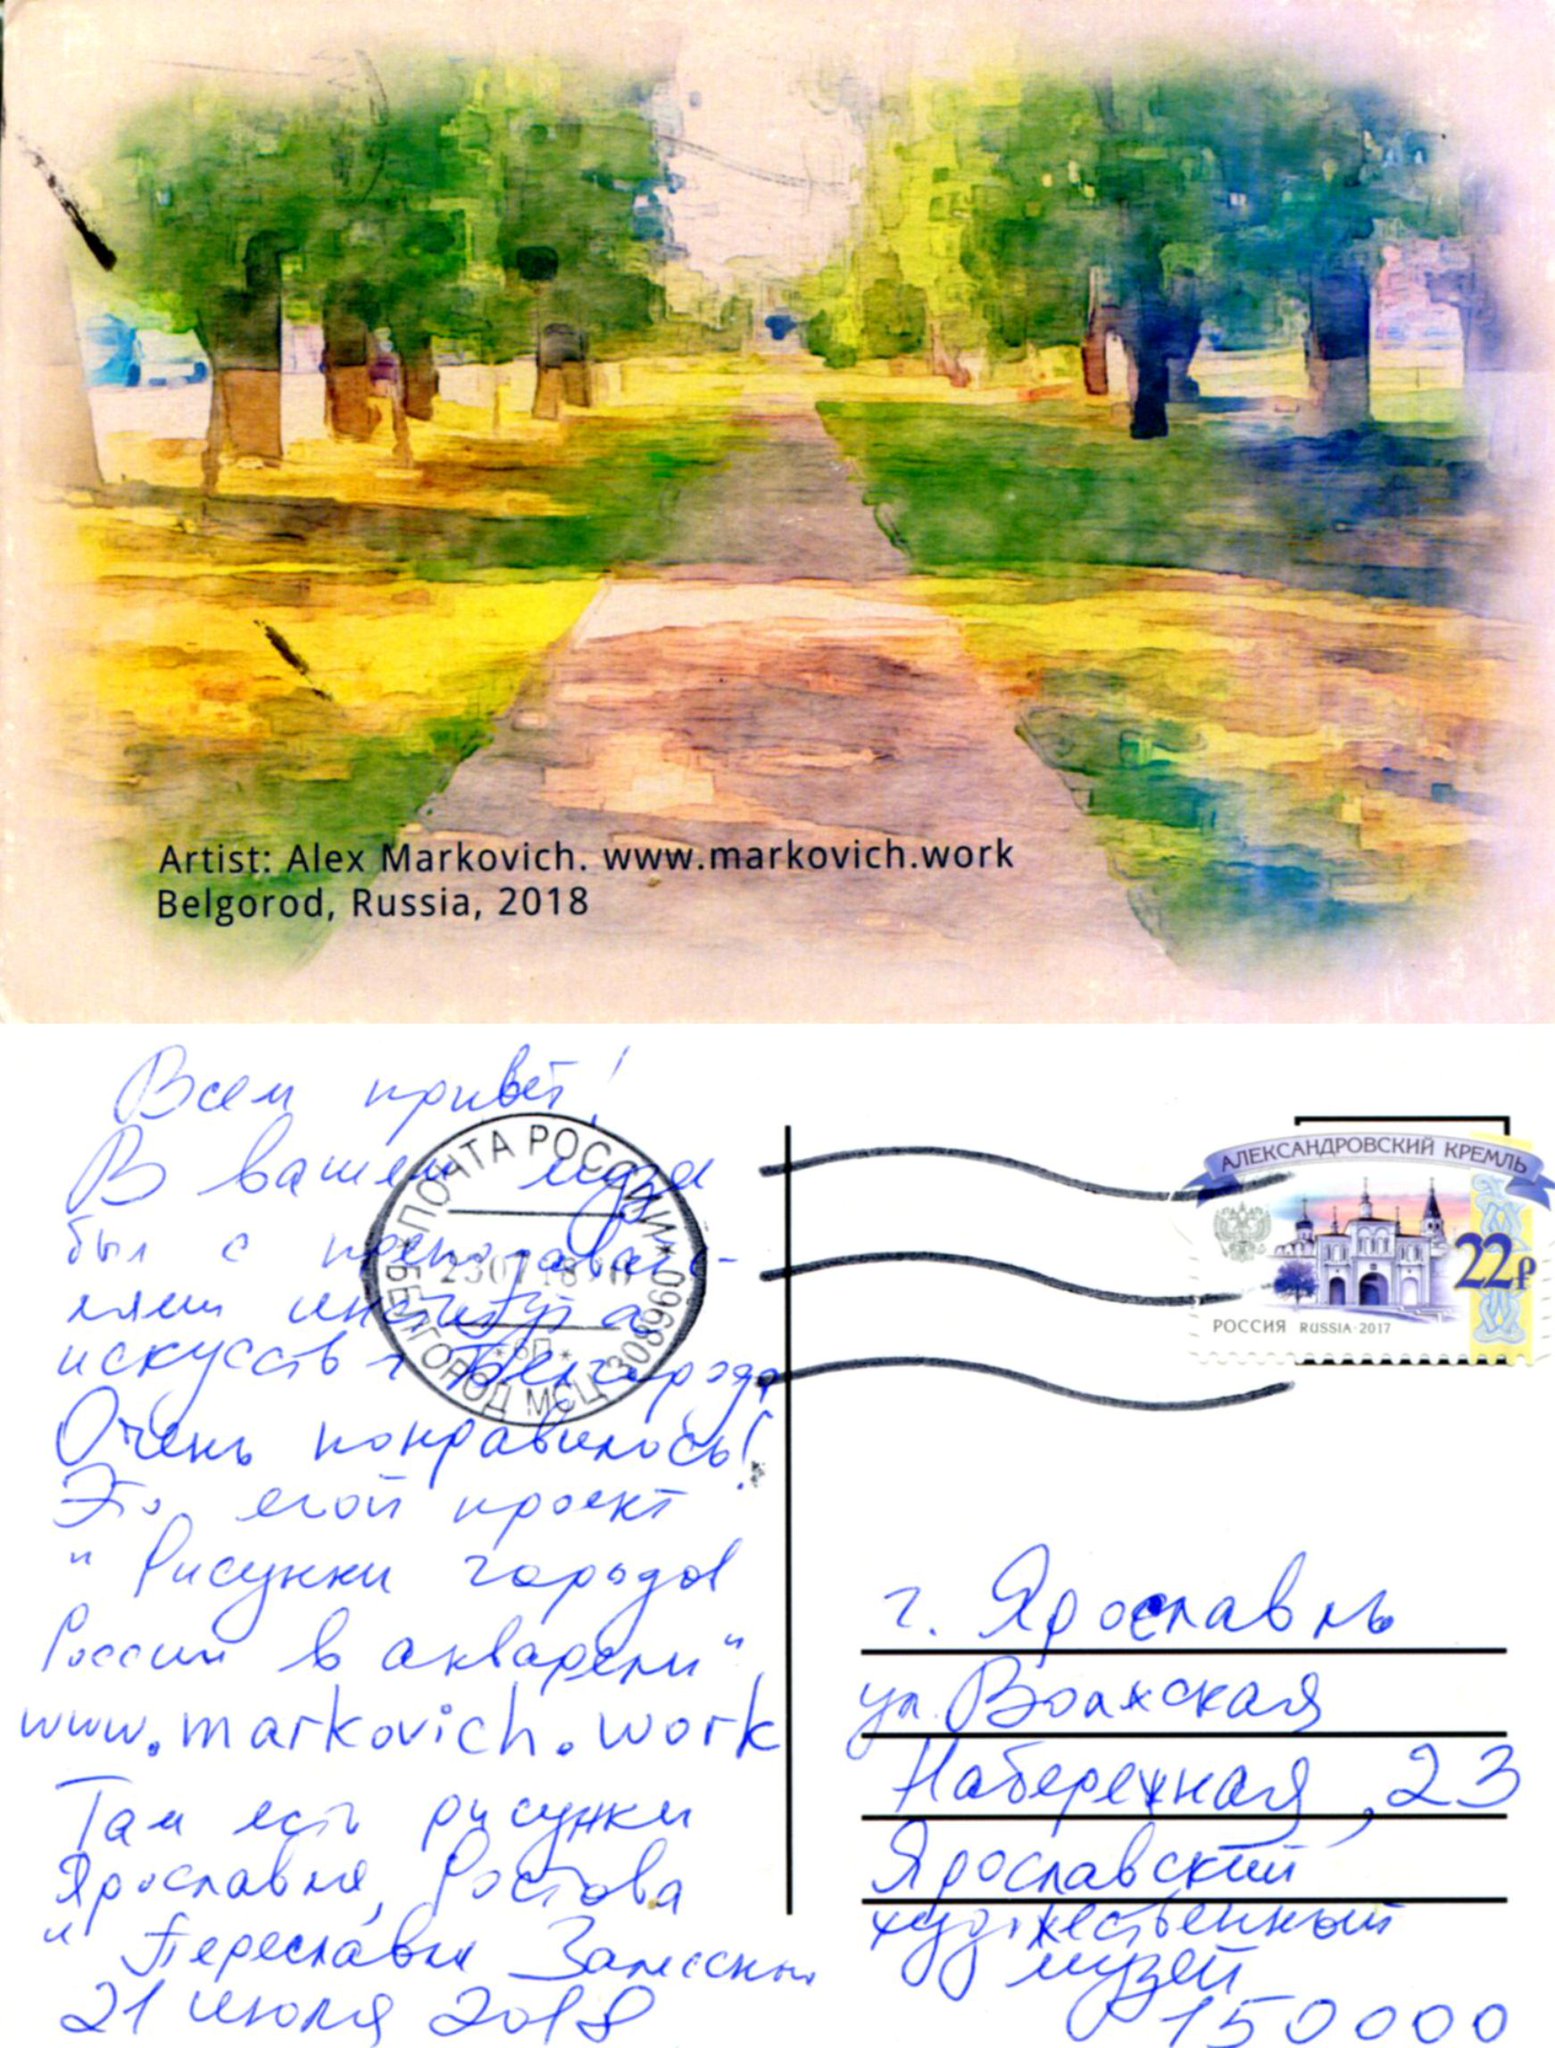 Artist: Alex Markovich. www.markovich.work
Belgorod, Russia, 2018
Всем привет!
В вашем музеи
был с преподавате-
лями института
искусств г Белгорода
Очень понравилось!
Это мой проект
"Рисунки городов
России в акварели"
www.markovich.work
Там есть рисунки
Ярославля, Ростова
и Переславля Залесский
21 июля 2018
ПОЧТА РОССИИ
БЕЛГОРОД МСЦ 308960
АЛЕКСАНДРОВСКИЙ КРЕМЛЬ
22₽
РОССИЯ RUSSIA·2017
г. Ярославль
ул. Волжская
Набережная, 23
Ярославский
художественный
музей
150000